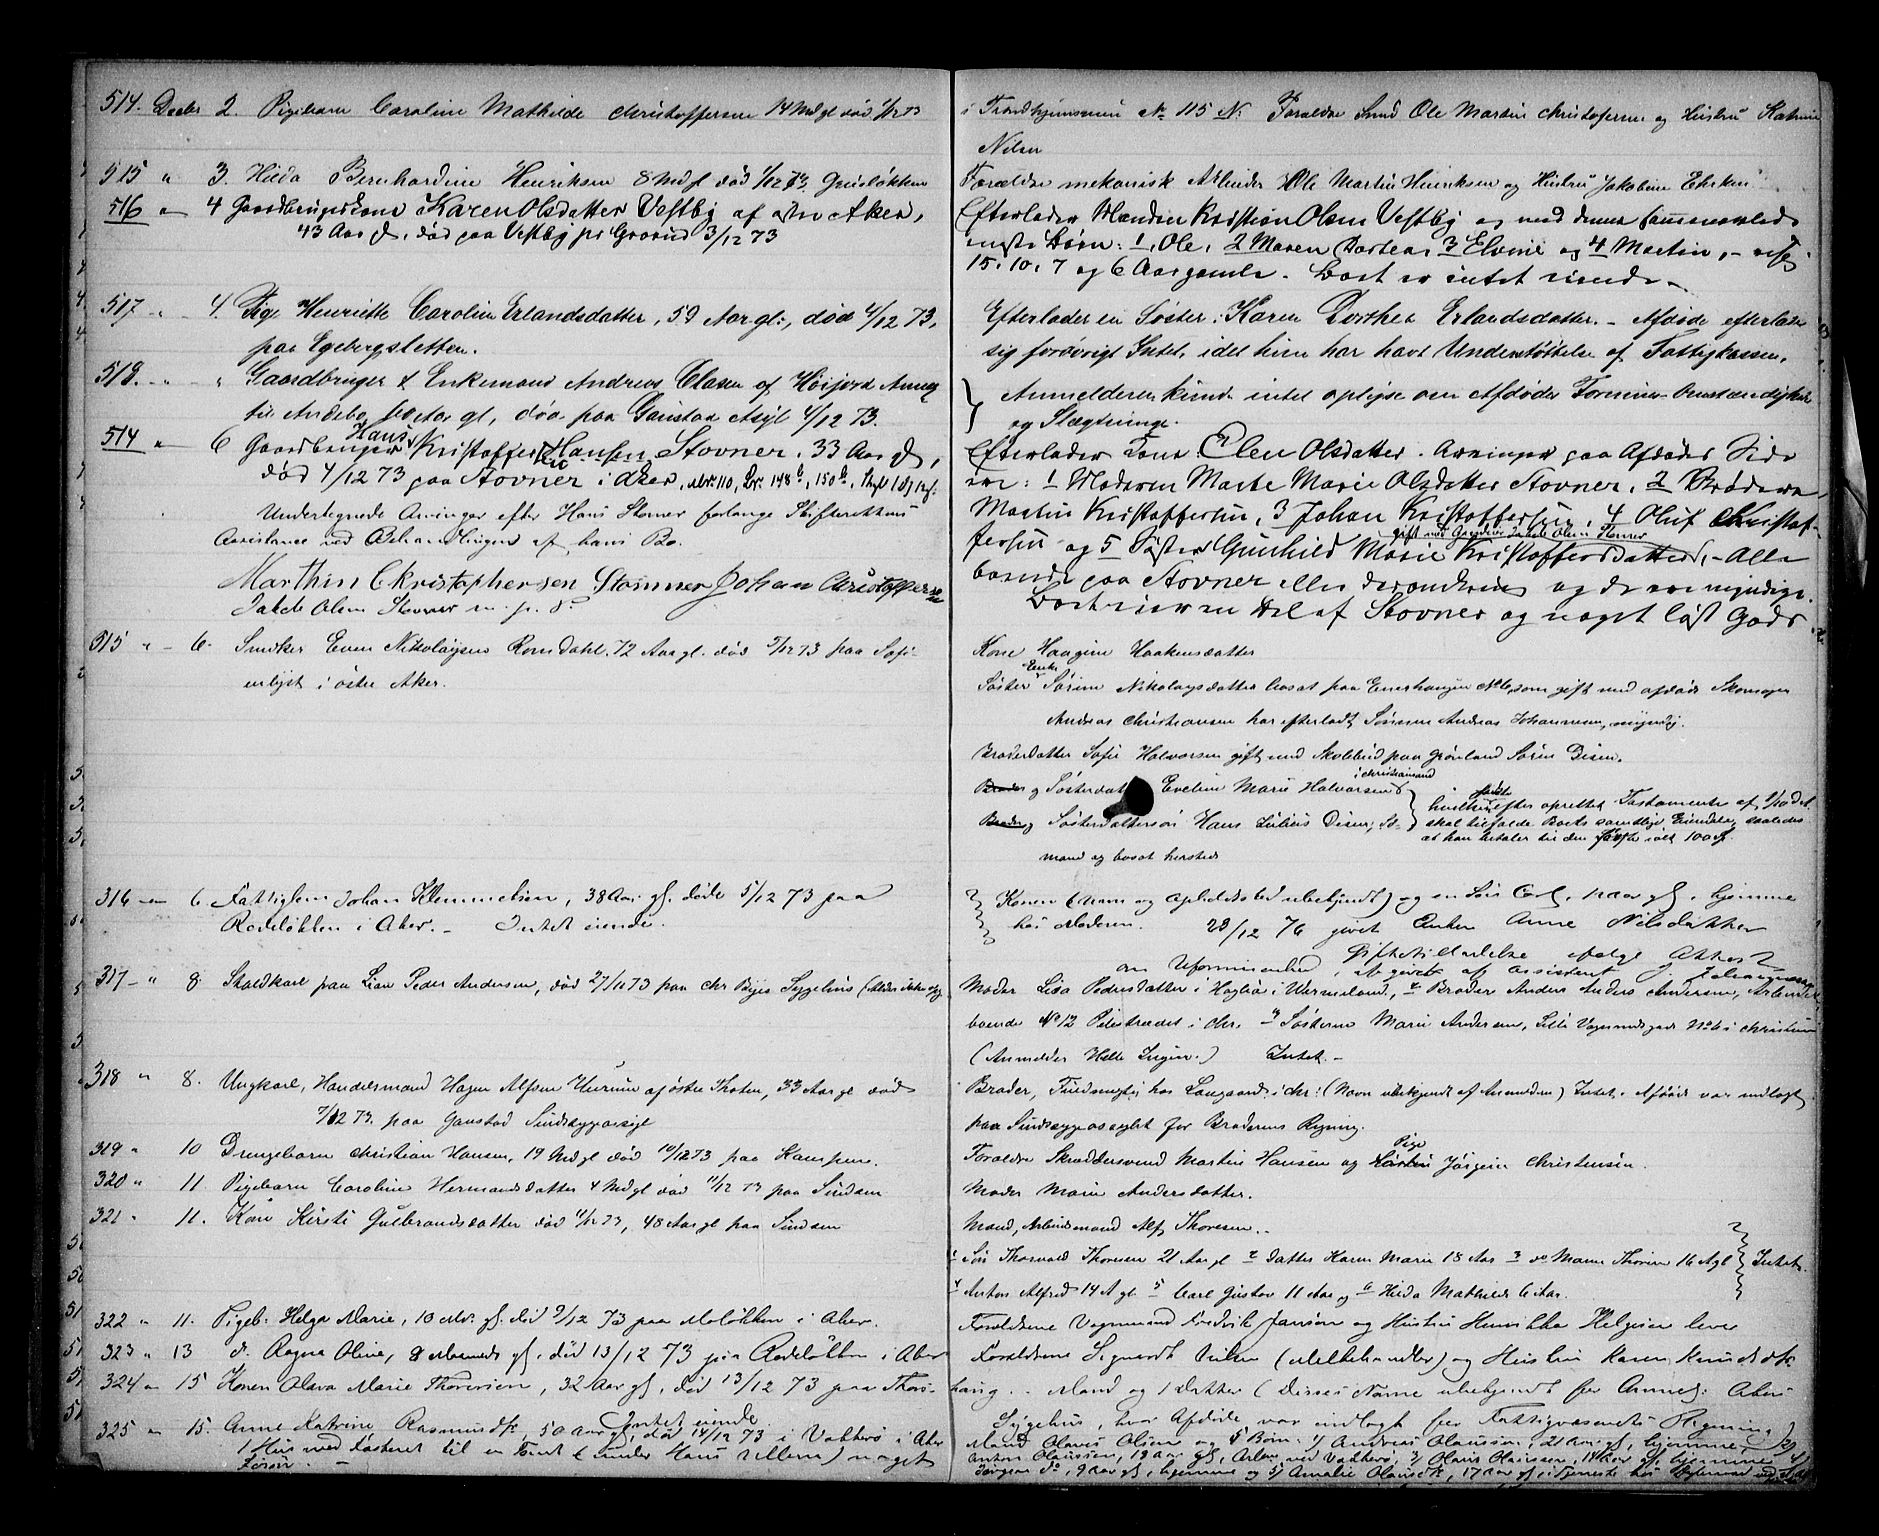 514. Decbr 2. Pigebarn Caroline Mathilde Christoffersen 14 Md gl død 1/12 73
515 " 3. Hilda Bernhardine Henriksen 8 Md gl død 1/12 73
516 " 4 Gaardbrugerkone Karen Olsdatter Vestby af østre Aker,
43 Aar gl, død paa Vestby pr Grorud 3/12 73
517 " 4. Pige Henriette Caroline Erlandsdatter, 59 Aar gl:, død 4/12 73,
paa Egebergsletten.
518. " " Gaardbruger & Enkemand Andreas Olasen af Høijord Annex
til Andebo, gl, død paa Gaustad Asyl 4/12 73.
514 " 6 Gaardbruger Hans Kristoffer Hansen Stovner, 33 Aar gl,
død 4/12 73 paa Stovner i Aker, Mtr. 110, Lbr. 148 b, 150 b,
Undertegnede Arvinger efter Hans Stovner forlange Skifterettens
Assistance ved Behandlingen af hans Bo.
Marthin Christophersen Stovner Johan Christoffersen
Jakob Olsen Stovner m. p. P.
515 " 6. Snedker Even Nikolaysen Romdahl. 72 Aar gl. død 5/12 73 paa Sofi-
enlyst i østre Aker.
316 " 6 Fattiglem Johan Klemmetsen, 38 Aar gl. døde 5/12 73 paa
Rodeløkken i Aker. – Intet eiende.
317 " 8. Staldkarl paa Lian Peder Andersen, død 27/11 73 paa Chr Byes Sygehus
318 " 8. Ungkarl, Handelsmand Hagen Alfsen Hurum af østre Thoten, 33 Aar gl død
7/12 73 paa Gaustad Sindssygeasyl
319 " 10 Drengebarn Christian Hansen, 19 Md gl død 10/12 73 paa Kampen.
320 " 11. Pigebarn Caroline Hermansdatter 4 Md gl død 11/12 73 paa Sindsen
321 " 11. Kone Kirsti Gulbrandsdatter død 11/12 73, 48 Aar gl paa Sindsen
322 " 11. Pigeb: Helga Marie, 10 Md. gl. død 9/12 73 paa Moløkken i Aker.
323 " 13 do. Ragna Oline, 8 Maaneds gl. død 13/12 73 paa Rodeløkken i Aker
324 " 15 Konen Olava Marie Thoresen, 32 Aar gl, død 13/12 73 paa Thors-
Intet eiende.
325 " 15. Anne Katrine Rasmusdtr, 50 Aar gl, død 14/12 73 i Vakkerø i Aker
1 Hus med Fæsteret til en Tomt (under Hans Ullern) noget
Løsøre.
i Trondhjemsveien No 115 N. Forældre Smed Ole Martin Christoffersen og Hustru Katrine
Nilsen
Forældre mekanisk Arbeider Ole Martin Henriksen og Hustru Jakobine
Efterlader Manden Kristian Olsen Vestby og med denne sammenavlede
umyndige Børn: 1, Ole, 2 Maren Dortea, 3 Elvine og 4 Martin, –
15. 10. 7 og 6 Aar gamle. Boet er intet eiende –
Efterlader en Søster: Karen Dorthea Erlandsdatter. – Afdøde efterlader
sig forøvrigt Intet, idet hun har havt Understøttelse af Fattigkassen.
Anmelderen kunde intet oplyse om Afdødes Formues-Omstændigheder
og Slægtninge.
Efterlader Kone Elen Olsdatter. Arvinger paa Afdødes Side
ere: 1 Moderen Marte Marie Olsdatter Stovner, 2 Brødrene
Martin Kristoffersen, 3 Johan Kristoffersen, 4 Oluf Christof-
gift med Gaardbr Jakob Olsen Stovner
fersen og 5 Søster Gunhild Marie Kristoffersdatter, – Alle
boende paa Stovner eller deromkring og de ere myndige.
Boet eier en Del af Stovner og noget løst Gods
Kone Haagine Haakensdatter
Enke
Søster Sørine Nikolaysdatter bosat paa Enerhaugen No 6, som gift med afdøde Skomager
Andreas Christiansen har efterladt Sønnen Andreas Johannesen, myndig.
Broderdatter Sofie Halvorsen gift med Skolebud paa Grønland Søren Disen.
i Christiansand
Broder og Søsterdatter Eveline Marie Halvorsen
Broder og Søsterdattersøn Hans Julius Disen,
mand og bosat hersteds
første
hvilken efter oprettet Testamente af
skal tilfalde Boets samtlige Eiendele, saaledes
at han betaler til den første 100
Konen (Navn og Opholdssted ubekjendt) og en Søn Carl, Aar gl. hjemme
hos Moderen. 28/12 76 givet Enken Anne Nilsdatter
Giftetilladelse ifølge Attest
om Uformuenhed, afgivet af Assistent Johannessen
Moder Lisa Pedersdatter i Wermeland, 2 Broder Anders Andersen, Arbeider
boende No 12 Pilestrædet i Chr. 3 Søsteren Marie Andersen, Lille Vognmandsgade No 6 i Christiania
(Anmelder Helle Ingier.) Intet. –
Broder, Fuldmægtig hos Langaard i Chr: (Navn ubekjendt af Anmelderen) Intet. Afdøde var indlagt
paa Sindssygeasylet for Broderens Regning.
Pige
Forældre Skræddersvend Martin Hansen og Jørgine Christensen.
Moder Marie Andersdatter.
Mand, Arbeidsmand Alf Thoresen.
1 Søn Thorvald Thoresen 21 Aar gl 2 Datter Karen Marie 18 Aar 3 do Maren Thorine 16 A gl Intet.
4 Anton Alfred 14 A gl 5 Carl Gustav 11 Aar og 6 Hilda Mathilde 6 Aar.
Forældrene Vognmand Fredrik Jansen og Hustru Henrikka Helgesen lever
Forældrene Sigvardt Nilsen (Melkehandler) og Hustru Karen Knudsdtr
haug. – Mand og 1 Datter (Disses Navne ubekjendt for Anmeld: Akers
Sygehus, hvor Afdøde var indlagt for Fattigvæsenets Regning)
Mand Olaus Olsen og 5 Børn: 1/ Andreas Olaussen, 21 Aar gl, hjemme, 2/
Anton Olaussen, 19 Aar gl, Arb. ved Vakkerø, 3/ Olaus Olaussen, 14 Aar gl, hjemme 4/
Jørgen do, 9 Aar gl, hjemme og 5/ Amalie Olausdtr, 17 Aar gl, i Tjeneste hos